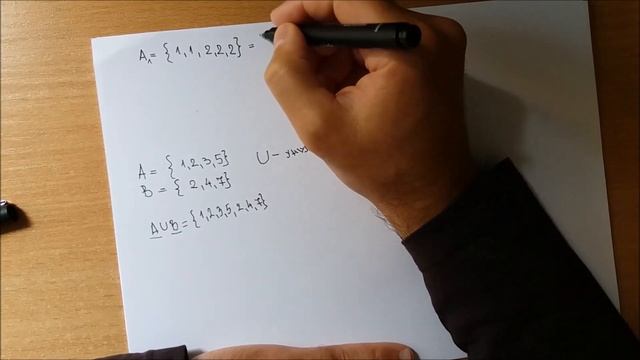 A₁ = {1,1,2,2,2} =
A = {1,2,3,5} U -
B = {2,4,7}
A∪B = {1,2,3,5,2,4,7}